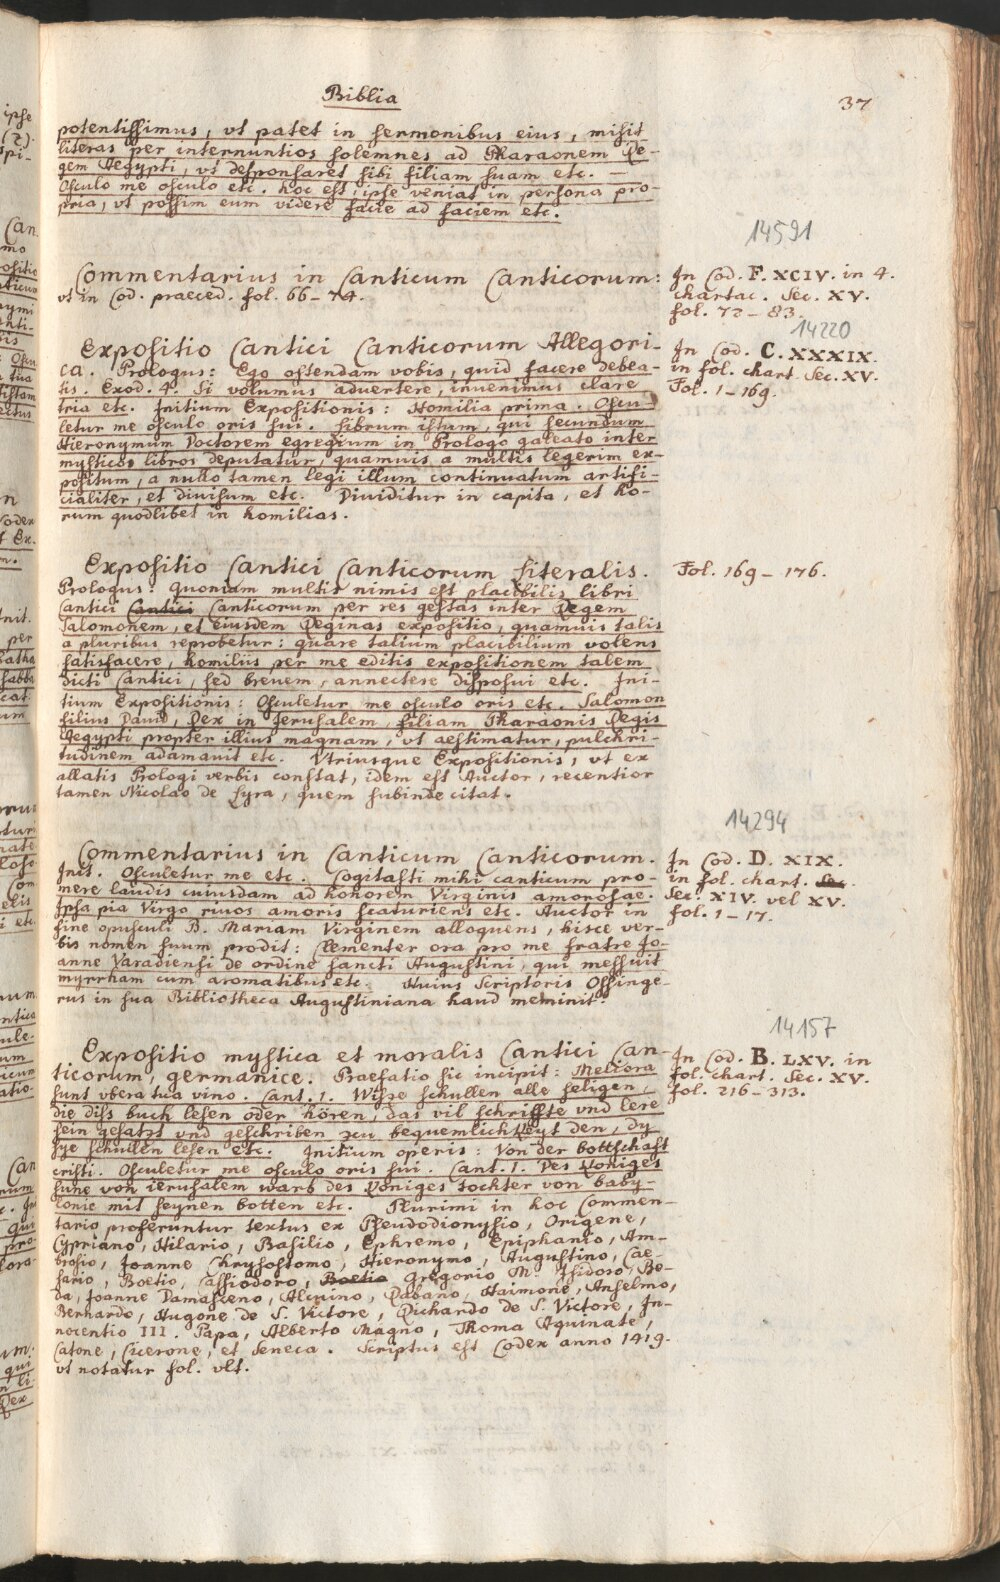 Biblia
37
potentissimus, vt patet in sermonibus eius, misit
literas per internuntios solemnes ad Pharaonem Re-
gem Aegypti, vt desponsaret sibi filiam suam etc. —
Osculo me osculo etc. hoc est, ipse veniat in persona pro-
pria, vt possim eum videre facie ad faciem etc.
14591
Commentarius in Canticum Canticorum:
vt in Cod. praeced. fol. 66–74.
In Cod. F. XCIV. in 4.
chartac. Sec. XV.
fol. 72–83.
14220
Expositio Cantici Canticorum Allegori-
ca. Prologus: Ego ostendam vobis, quid facere debea-
tis. Exod. 4. Si volumus aduertere, inuenimus clare
tria etc. Initium Expositionis: Homilia prima. Oscu-
letur me osculo oris sui. Librum istum, qui secundum
Hieronymum Doctorem egregium in Prologo galeato inter
mysticos libros deputatur, quamuis a multis legerim ex-
positum, a nullo tamen legi illum continuatum artifi-
cialiter, et diuisum etc. Diuiditur in capita, et ho-
rum quodlibet in homilias.
In Cod. C. XXXIX.
in fol. chart. Sec. XV.
Fol. 1–169.
Expositio Cantici Canticorum Literalis.
Fol. 169–176.
Prologus: Quoniam multis nimis est placibilis libri
Cantici Cantici Canticorum per res gestas inter Regem
Salomonem, et eiusdem Reginas expositio, quamuis talis
a pluribus reprobetur: quare talium placibilium volens
satisfacere, homiliis per me editis expositionem talem
dicti Cantici, sed breuem, annectere disposui etc. Ini-
tium Expositionis: Osculetur me osculo oris etc. Salomon
filius Dauid, Rex in Jerusalem, filiam Pharaonis Regis
Aegypti propter illius magnam, vt aestimatur, pulchri-
tudinem adamauit etc. Vtriusque Expositionis, vt ex
allatis Prologi verbis constat, idem est Auctor, recentior
tamen Nicolao de Lyra, quem subinde citat.
14294
Commentarius in Canticum Canticorum.
Init. Osculetur me etc. Cogitasti mihi canticum pro-
mere laudis cuiusdam ad honorem Virginis amorosae.
Ipsa pia Virgo riuos amoris scaturiens etc. Auctor in
fine opusculi B. Mariam Virginem alloquens, hisce ver-
bis nomen suum prodit: Clementer ora pro me fratre Jo-
anne Varadiensi de ordine sancti Augustini, qui messuit
myrrham cum aromatibus etc. Huius Scriptoris Ossinge-
rus in sua Bibliotheca Augustiniana haud meminit.
In Cod. D. XIX.
in fol. chart. Sec.
Sec. XIV. vel XV.
fol. 1–17.
14157
Expositio mystica et moralis Cantici Can-
ticorum, germanice. Praefatio sic incipit: Meliora
sunt vbera tua vino. Cant. 1. Wisse schullen alle seligen,
die diss buch lesen oder hören, das vil schriffte vnd lere
sein gesatzt vnd geschriben zcu bequemlichkeyt den, dy
sye schullen lesen etc. Initium operis: Von der bottschaft
cristi. Osculetur me osculo oris sui. Cant. I. Des Koniges
sune von ierusalem warb des Koniges tochter von baby-
lonie mit seynen botten etc. Plurimi in hoc Commen-
tario proferuntur textus ex Pseudodionysio, Origene,
Cypriano, Hilario, Basilio, Ephremo, Epiphanio, Am-
brosio, Joanne Chrysostomo, Hieronymo, Augustino, Cae-
sario, Boetio, Cassiodoro, Boetio Gregorio M. Isidoro, Be-
da, Joanne Damasceno, Alcuino, Rabano, Haimone, Anselmo,
Bernardo, Hugone de S. Victore, Richardo de S. Victore, In-
nocentio III. Papa, Alberto Magno, Thoma Aquinate,
Catone, Cicerone, et Seneca. Scriptus est Codex anno 1419.
vt notatur fol. vlt.
In Cod. B. LXV. in
fol. chart. Sec. XV.
fol. 216–313.